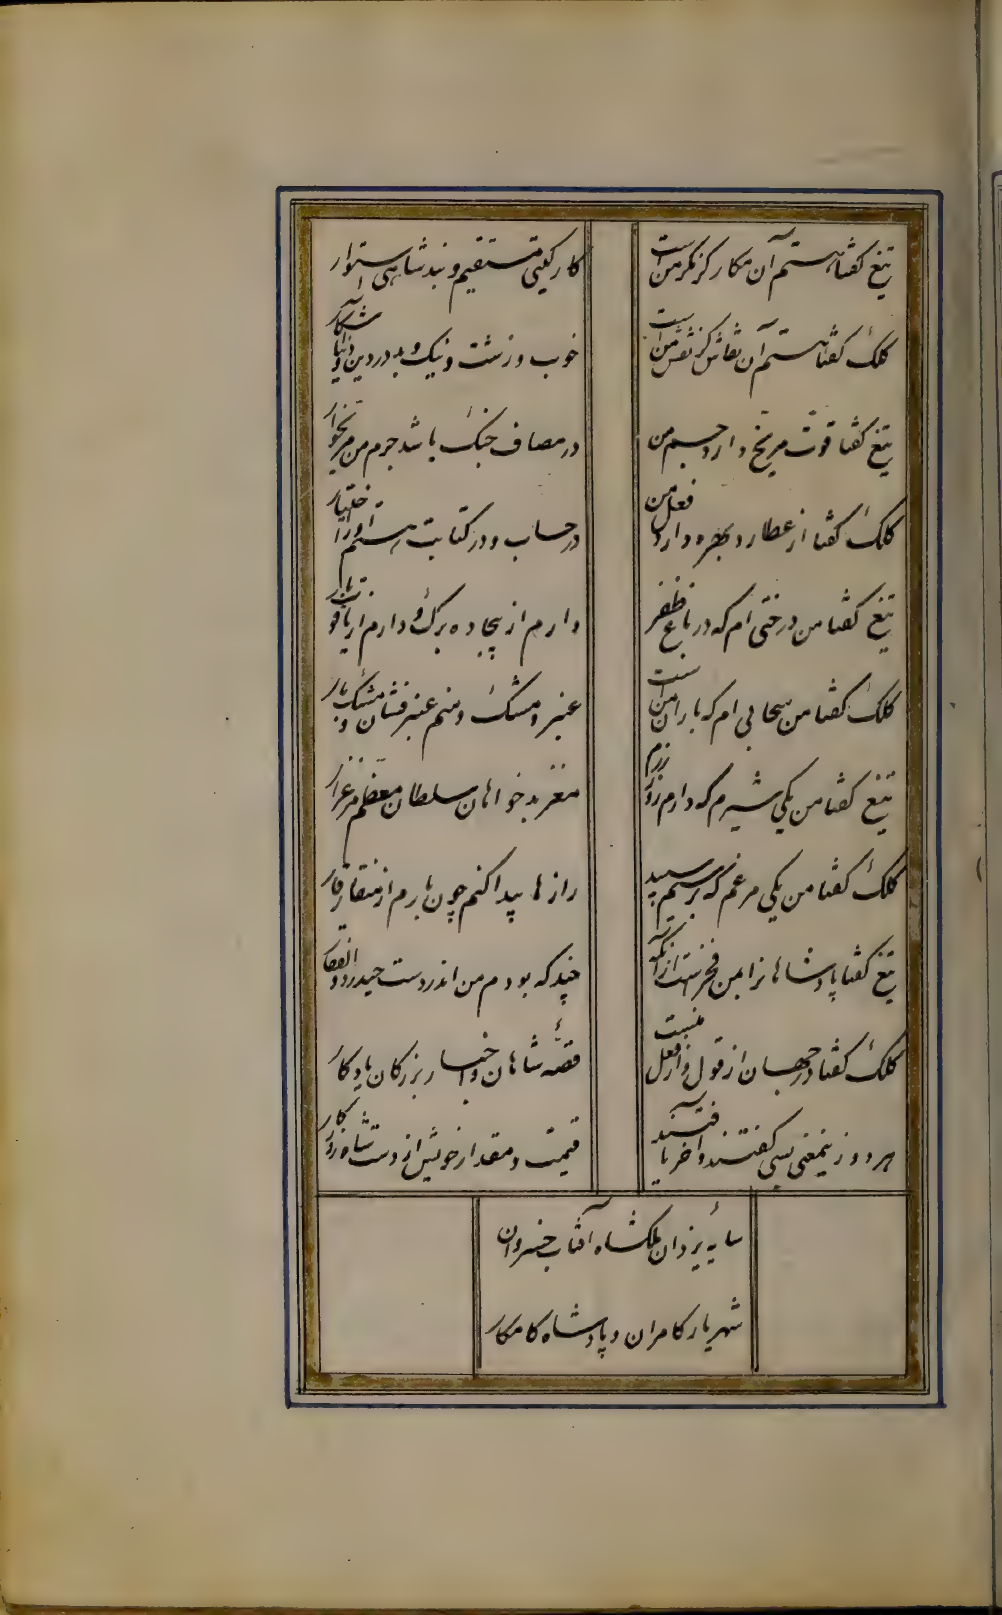 تیغ گفتا هستم آن مکار کز مکر من است
کار گیتی مستقیم و بند شاهی استوار
کلک گفتا هستم آن نقاش کز نقش من است
خوب و زشت و نیک و بد در دین و دنیا آشکار
تیغ گفتا قوت مریخ دارد جسم من
در مصاف جنگ باشد جرم من مریخ وار
کلک گفتا از عطارد بهره دارد فعل من
در حساب و در کتابت هستم او را اختیار
تیغ گفتا من درختی ام که در باغ ظفر
دارم از بیجاده برگ و دارم از یاقوت بار
کلک گفتا من سحابی ام که باران من است
عنبر و مشک و منم عنبر فشان و مشک بار
تیغ گفتا من یکی شیرم که دارم روز رزم
مغز بدخواهان سلطان معظم مرغزار
کلک گفتا من یکی مرغم که بر سیم سپید
رازها پیدا کنم چون بارم از منقار قار
تیغ گفتا پادشاهانرا بمن فخرست از آنکه
چندگه بودم من اندر دست حیدر ذوالفقار
کلک گفتا در جهان از قول و از فعل منست
قصهٔ شاهان و اخبار بزرگان یادگار
هر دو زینمعنی بسی گفتند و آخر یافتند
قیمت و مقدار خویش از دست شاه روزگار
سایهٔ یزدان ملکشاه آفتاب خسروان
شهریار کامران و پادشاه کامکار